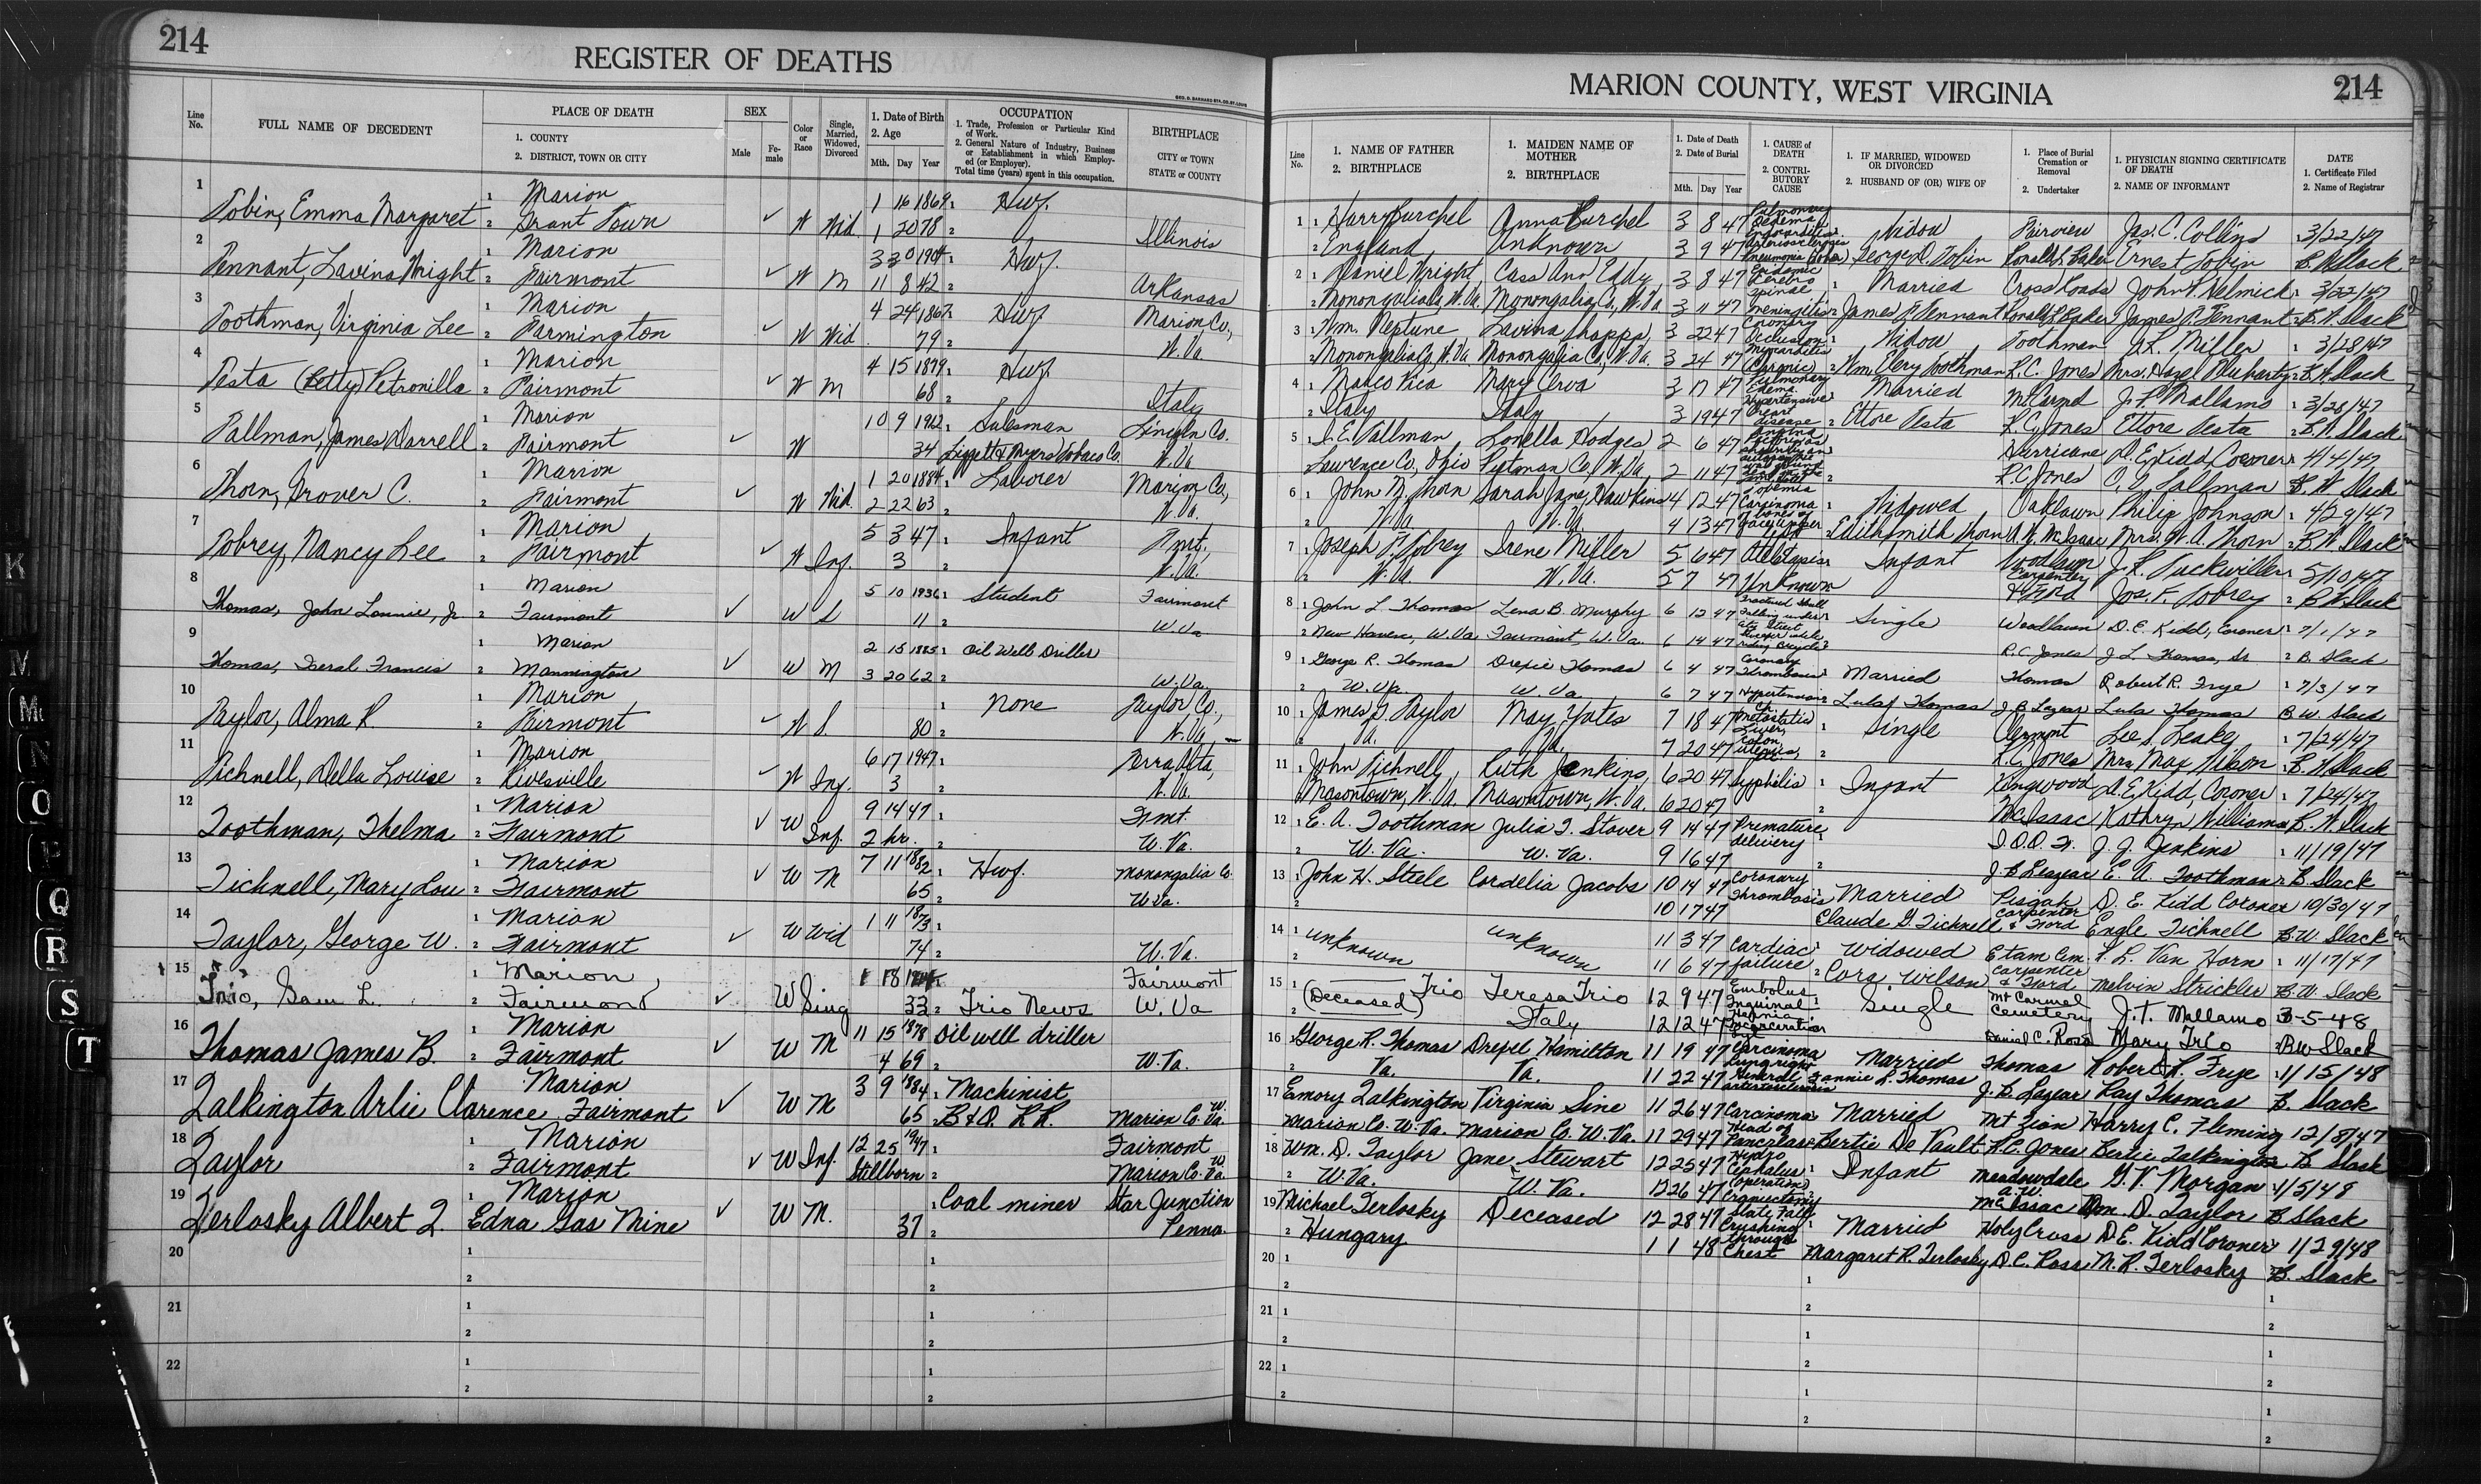 214
REGISTER OF DEATHS
GEO. D. BARNARD STA. CO. ST. LOUIS
Line No.
FULL NAME OF DECEDENT
PLACE OF DEATH
1. COUNTY
2. DISTRICT, TOWN OR CITY
SEX
Male
Fe-male
Color or Race
Single, Married, Widowed, Divorced
1. Date of Birth
2. Age
Mth. Day Year
OCCUPATION
1. Trade, Profession or Particular Kind of Work.
2. General Nature of Industry, Business or Establishment in which Employed (or Employer).
Total time (years) spent in this occupation.
BIRTHPLACE
CITY or TOWN
STATE or COUNTY
1 Tobin, Emma Margaret 1 Marion 1 16 1869 1 Hwf.
2 Grant Town ✓ W Wid. 1 20 78 2 Illinois
2 Tennant, Lavina Wright 1 Marion 3 30 1904 1 Hwf.
2 Fairmont ✓ W M 11 8 42 2 Arkansas
3 Toothman, Virginia Lee 1 Marion 4 24 1867 1 Hwf Marion Co.,
2 Farmington ✓ W Wid. 79 2 W.Va
4 Testa (Betty) Petronilla 1 Marion 4 15 1879 1 Hwf.
2 Fairmont ✓ W M 68 2 Italy
5 Tallman, James Darrell 1 Marion 10 9 1912 1 Salesman Lincoln Co.
2 Fairmont ✓ W 34 Liggett & Myers Tobacco Co. W.Va
6 Thorn, Grover C. 1 Marion 1 20 1884 1 Laborer Marion Co.,
2 Fairmont ✓ W Wid. 2 22 63 2 W.Va.
7 Tobrey, Nancy Lee 1 Marion 5 3 47 1 Infant Fmt.,
2 Fairmont ✓ W Inf. 3 2 W.Va.
8 Thomas, John Lonnie, Jr. 1 Marion 5 10 1936 1 Student Fairmont
2 Fairmont ✓ W S 11 2 W.Va
9 Thomas, Francis 1 Marion 2 15 1885 1 Oil Well Driller
2 Mannington ✓ W M 3 20 62 2 W.Va.
10 Taylor, Alma R. 1 Marion 1 None Taylor Co.,
2 Fairmont ✓ W S. 80 2 W.Va
11 Tichnell, Della Louise 1 Marion 6 17 1947 1 Terra Alta,
2 Rivesville ✓ W Inf. 3 2 W.Va.
12 Toothman, Thelma 1 Marion 9 14 47 1 Fmt.
2 Fairmont ✓ W Inf. 2 hr. 2 W.Va.
13 Tichnell, Mary Lou 1 Marion 7 11 1882 1 Hwf. Monongalia Co.
2 Fairmont ✓ W M 65 2 W.Va.
14 Taylor, George W. 1 Marion 1 11 1873 1
2 Fairmont ✓ W Wid 74 2 W.Va.
15 Trio, Sam L. 1 Marion 18 Fairmont
2 Fairmont ✓ W Sing 33 2 Trio News W. Va
16 Thomas James B. 1 Marion 11 15 1878 Oil well driller
2 Fairmont ✓ W M 4 69 2 W.Va.
17 Talkington Arlie Clarence Marion 3 9 1884 1 Machinist
Fairmont ✓ W M 65 2 B & O. R.R. Marion Co. W. Va.
18 Taylor 1 Marion 12 25 1947 1 Fairmont
2 Fairmont ✓ W Inf. Stillborn 2 Marion Co. W. Va.
19 Terlosky Albert J. 1 Marion 1 Coal miner Star Junction
Edna Gas Mine ✓ W M. 37 2 Penna.
20 1
2
21 1
2
22 1
2
MARION COUNTY, WEST VIRGINIA
214
Line No.
1. NAME OF FATHER
2. BIRTHPLACE
1. MAIDEN NAME OF MOTHER
2. BIRTHPLACE
1. Date of Death
2. Date of Burial
Mth. Day Year
1. CAUSE of DEATH
2. CONTRIBUTORY CAUSE
1. IF MARRIED, WIDOWED OR DIVORCED
2. HUSBAND OF (OR) WIFE OF
1. Place of Burial Cremation or Removal
2. Undertaker
1. PHYSICIAN SIGNING CERTIFICATE OF DEATH
2. NAME OF INFORMANT
DATE
1. Certificate Filed
2. Name of Registrar
1 1 Harry Burchel Anna Burchel 3 8 47 Pulmonary Edema Endocarditis Widow Fairview Jas. C. Collins 3/22/47
2 England Unknown 3 9 47 Arteriosclerosis Pneumonia George D. Tobin Ronald L. Baker Ernest Tobin B. W. Slack
2 1 Daniel Wright Cass Ann Eddy 3 8 47 Epidemic Cerebro Spinae Married Cross Roads John P. Helmick 3/22/47
2 Monongalia Co, W. Va. Monongalia Co., W. Va 3 11 47 meningitis James F. Tennant Ronald L Baker James F. Tennant B. W. Slack
3 1 Wm. Neptune Lavina Shapps 3 22 47 Coronary Occlusion Widow Toothman J. L. Miller 3/28/47
2 Monongalia Co, W. Va. Monongalia Co, W. Va. 3 24 47 Myocarditis Chronic Wm. Elery Toothman R.C. Jones Mrs. Hazel Fluharty B. W. Slack
4 1 Marco Vica Mary Cerva 3 17 47 Pulmonary Edema Married Mt. Carmel J. T. Mallamo 3/28/47
2 Italy Italy 3 19 47 Hypertensive Heart disease Ettore Testa R.C. Jones Ettore Testa B. W. Slack
5 1 C. E. Tallman Lonella Hodges 2 6 47 Hurricane D. E. Kidd, Coroner 4/4/47
Lawrence Co, Ohio Putman Co, W. Va. 2 11 47 R.C. Jones B. W. Slack
6 1 John N. Thorn Sarah Jane Hawkins 4 12 47 Carcinoma of bones of face Widowed Oaklawn Philip Johnson 4/29/47
2 W.Va. W.Va. 4 13 47 Edith Smith Thorn A. W. McIsaac Mrs. W. A. Thorn B. W. Slack
7 1 Joseph F. Tobrey Irene Miller 5 6 47 Infant Woodlawn J. R. Tuckwiller 5/10/47
2 W.Va. W.Va. 5 7 47 Unknown Carpenter & Ford Jos. F. Tobrey B. W. Slack
8 1 John L. Thomas Lena B. Murphy 6 12 47 Fractured Skull Falling under Single Woodlawn D.E. Kidd, Coroner 7/1/47
2 New Haven, W. Va. Fairmont, W. Va. 6 14 47 Street Sweeper while riding Bicycle R.C. Jones J L. Thomas, Sr 2 B. Slack
9 1 George R. Thomas Drexie Thomas 6 4 47 Coronary Thrombosis Married Thomas Robert R. Frye 7/3/47
2 W.Va. W Va. 6 7 47 Hypertension Lula Thomas J. B. Leazear Lula Thomas B. W. Slack
10 1 James P. Taylor May Yates 7 18 47 Metastatic Liver, colon Single Clermont Lee S. Leake 7/24/47
2 Va. Va. 7 20 47 R.C. Jones Mrs. Max Wilson B. W. Slack
11 1 John Tichnell, Ruth Jenkins, 6 20 47 Syphilis Infant Kingwood D. E. Kidd, Coroner 7/24/47
Masontown, W. Va Masontown, W. Va. 6 20 47 McIsaac Kathryn Williams B. W. Slack
12 1 E. A. Toothman Julia T. Stover 9 14 47 Premature delivery I.O.O.F. J. J. Jenkins 11/19/47
2 W. Va. W. Va. 9 16 47 J. B Leazear E. A. Toothman B. Slack
13 1 John H. Steele Cordelia Jacobs 10 14 47 Coronary Thrombosis Married Pisgah D. E. Kidd Coroner 10/30/47
2 10 17 47 Claude G. Tichnell Carpenter & Ford Engle Tichnell B. W. Slack
14 1 Unknown Unknown 11 3 47 Cardiac failure Widowed Etam Cem. L. R. Van Horn 11/17/47
2 11 6 47 Cora Wilson Carpenter & Ford Melvin Strickler B. W. Slack
15 1 Trio Teresa Trio 12 9 47 Embolus Inguinal Hernia Single Mt Carmel Cemetery J. T. Mallamo 3-5-48
(Deceased) Italy 12 12 47 Incarceration Daniel C. Ross Mary Trio B W Slack
16 1 George R. Thomas Drexel Hamilton 11 19 47 Carcinoma Lung right Married Thomas Robert R. Frye 1/15/48
2 Va. Va. 11 22 47 General arteriosclerosis Fannie L. Thomas J. B. Leazear Ray Thomas B. Slack
17 Emory Talkington Virginia Sine 11 26 47 Carcinoma Head of Married Mt Zion Harry C. Fleming 12/8/47
Marion Co. W. Va. Marion Co. W. Va. 11 29 47 Pancreas Bertie De Vault R.C. Jones Bertie Talkington B Slack
18 Wm. D. Taylor Jane Stewart 12 25 47 Hydro Cephalus Infant Meadowdale G. V. Morgan 1/5/48
2 W. Va. W. Va. 12 26 47 (operation) Craniectomy A. W. McIsaac Wm. D. Taylor B Slack
19 Michael Terlosky Deceased 12 28 47 Slate Fall Crushing Married Holy Cross D.E. Kidd Coroner 1/29/48
2 Hungary 1 1 48 through Chest Margaret R. Terlosky D. C. Ross M. R. Terlosky B. Slack
20 1
2
21 1
2
22 1
2
K
M
Mc
N
O
P
Q
R
S
T